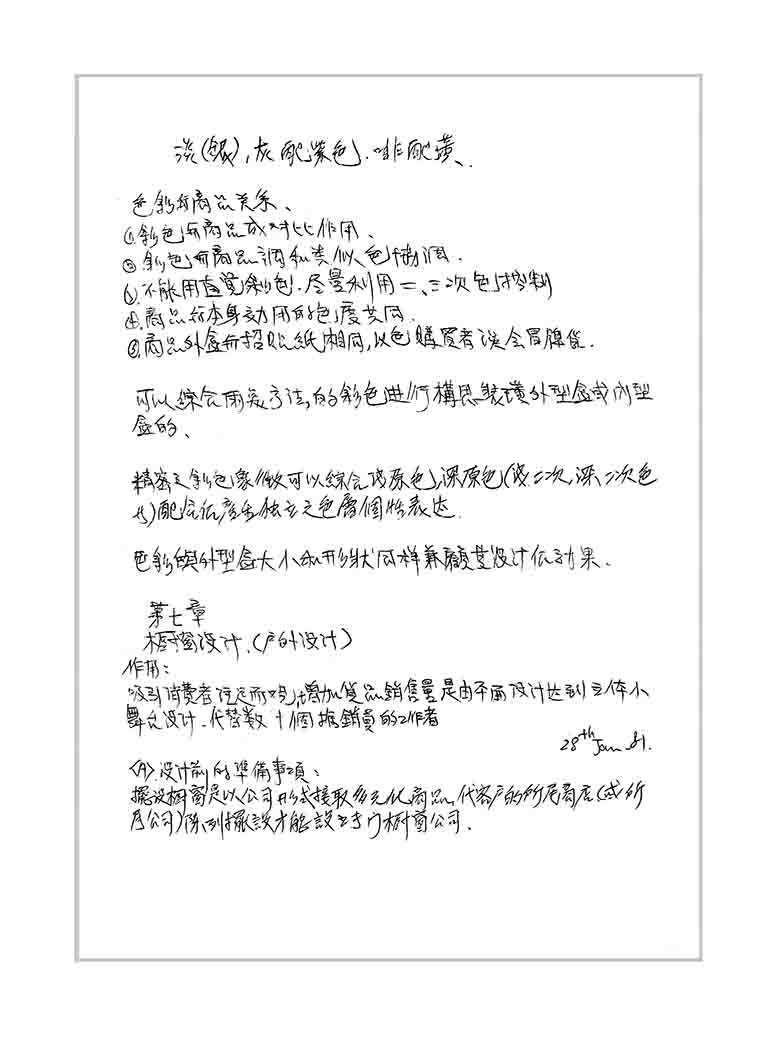 淡(銀),灰配紫色.啡配黃、
色彩与商品关系、
①彩色与商品成对比作用、
②彩色与商品調和类似色協调.
③不能用直覚彩色.尽量利用二、三次色控制
④商品与本身功用的色度共同.
⑤商品外盒与招贴紙相同,以色購買者误会冒牌货.
可以綜合兩美方法,的彩色进行構思装璜外型盒或內型
盒的、
精密之彩色象徵可以綜合浅原色,深原色(浅二次,深、二次色
)配合 独立之色層個性表达.
色彩與外型盒大小和形狀同样兼顧其设计 効果.
第七章
橱窗设计.(户外设计)
作用:
吸引消費者 增加货品銷售量是由平面设计达到立体小
舞台设计.代替数十個推銷員的工作者
28th Jan 81.
<A>.设计前的準備事項:
擺设橱窗是以公司形式接取多元化商品,代客户的所属商店(或所
屬公司)陈列擺設才能設立专门橱窗公司.